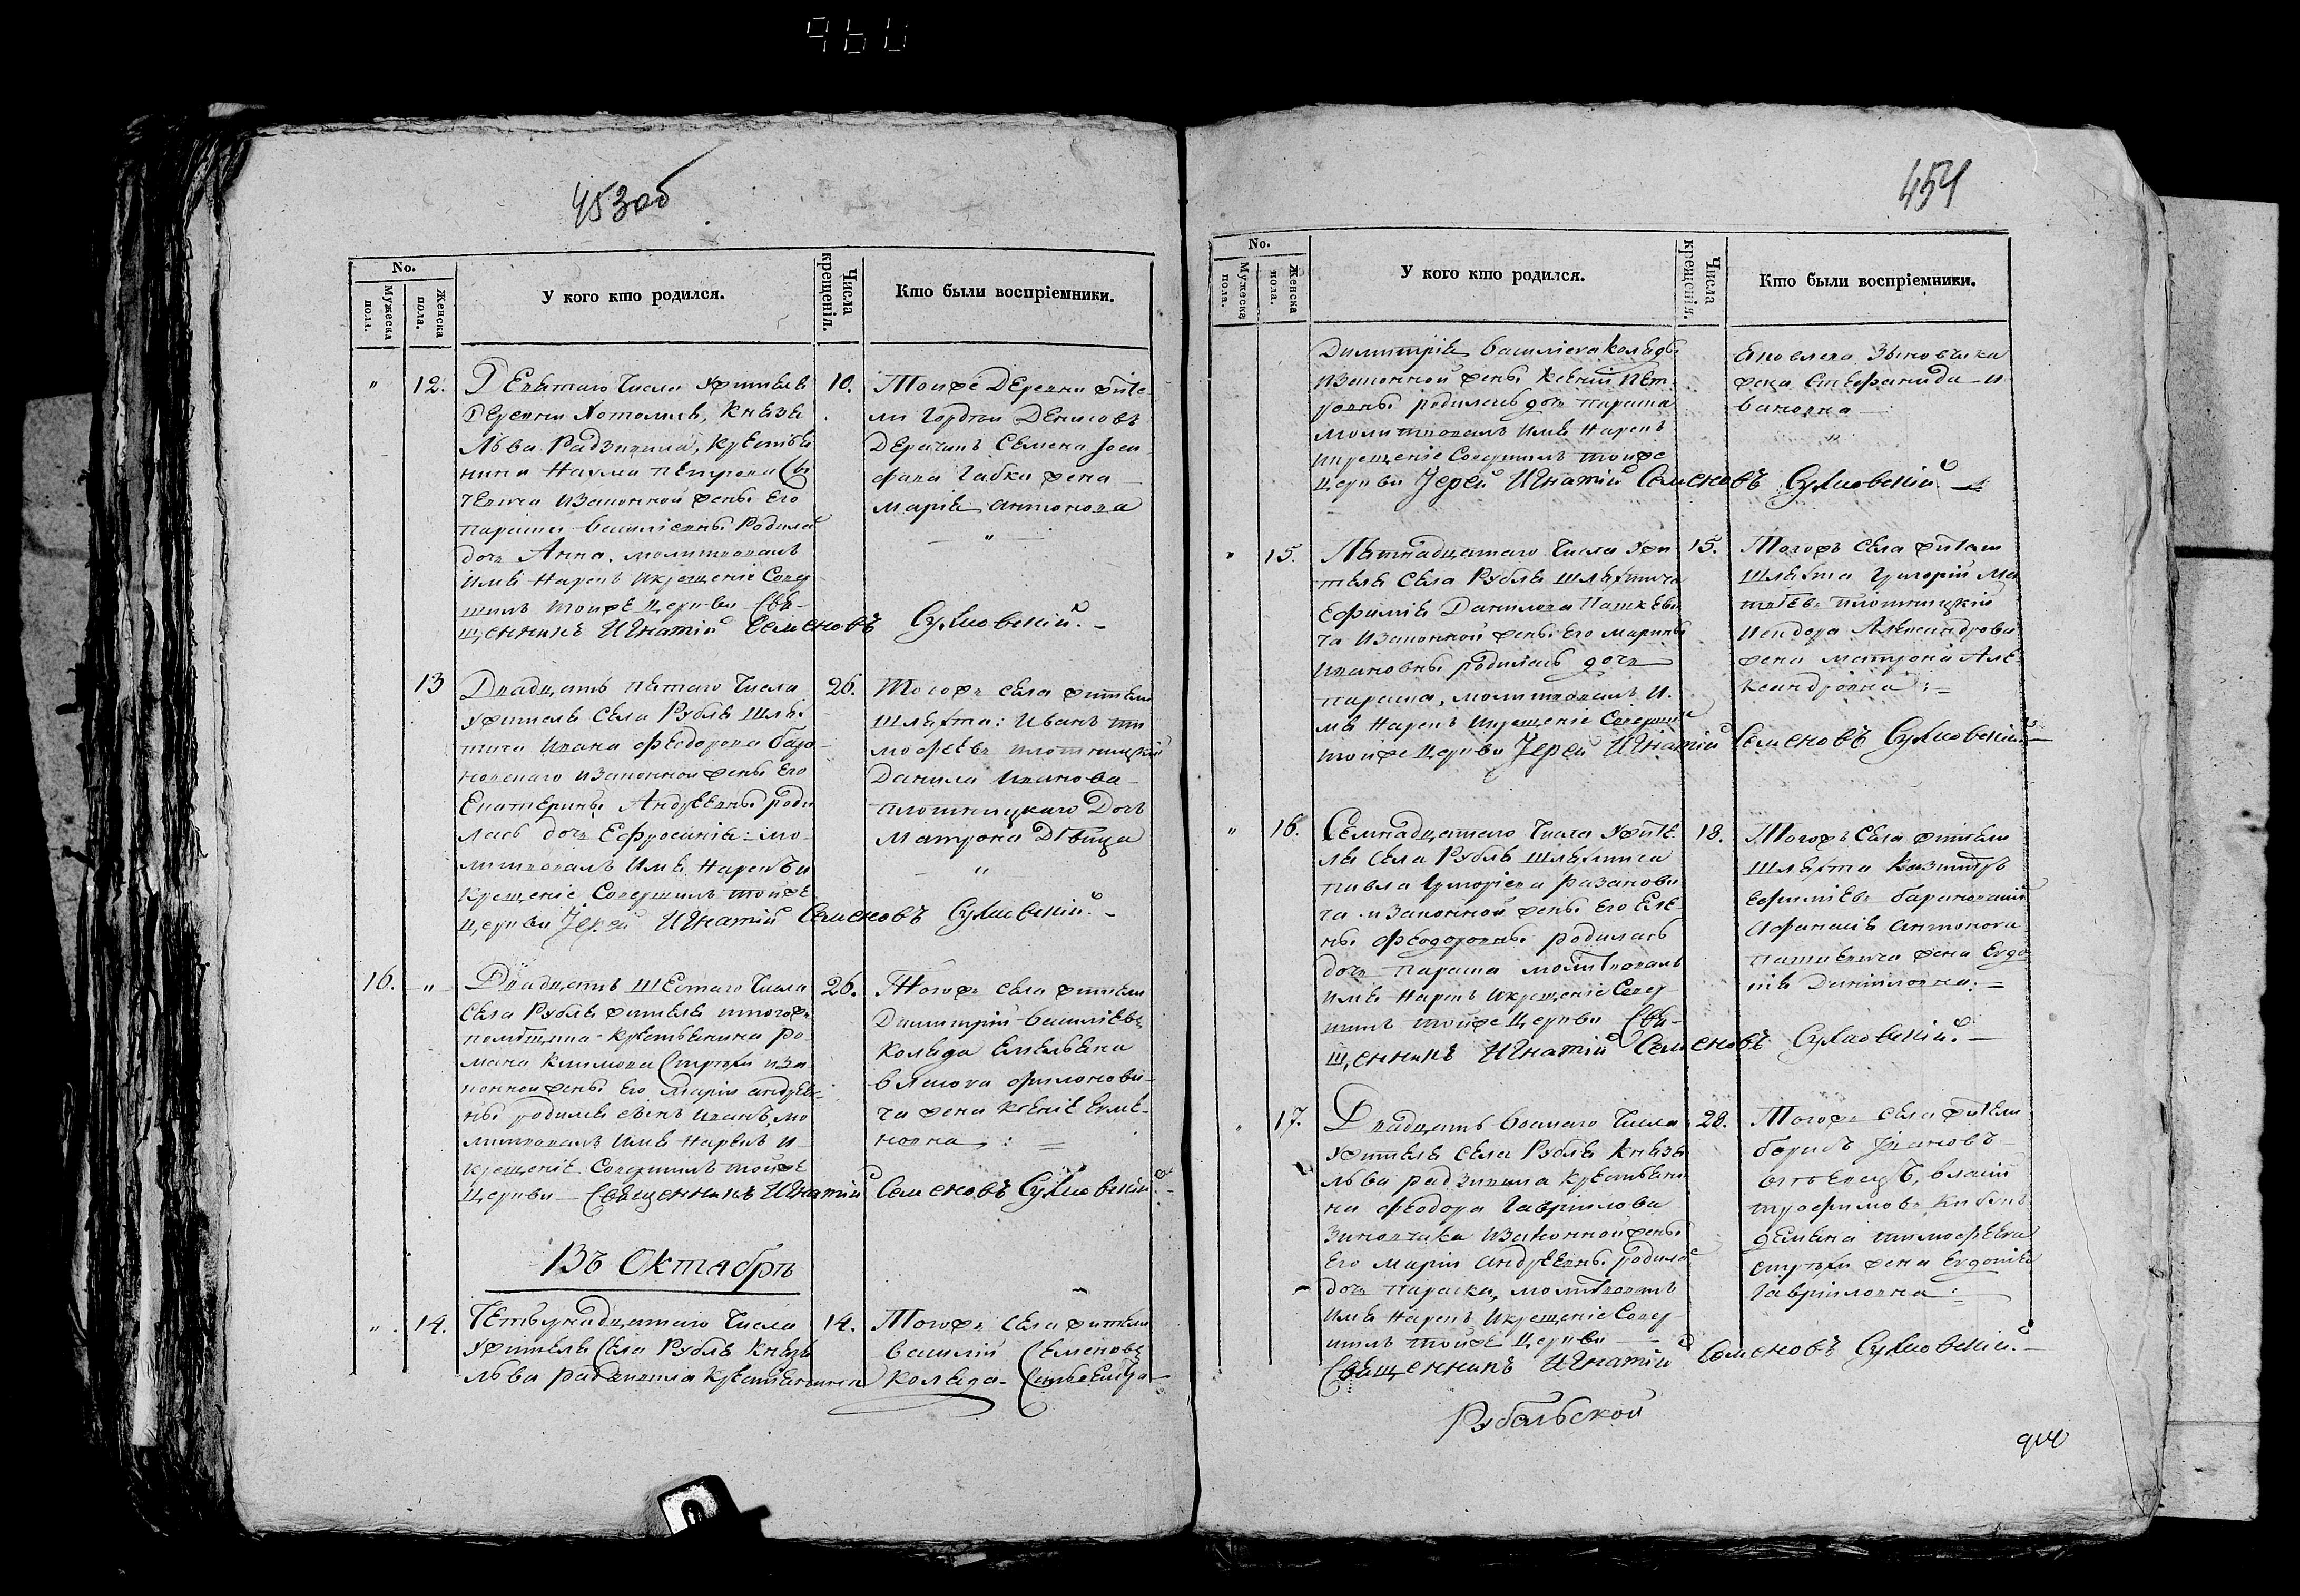 960
453об
No.
Мужеска пола.
Женска пола.
У кого кто родился.
Числа крещенія.
Кто были воспріемники.
" 12.
Девятаго Числа Жителя
Деревни Хотомля, Князя
Льва Радзивила, Крестья
нина Наума Петрова
законной жены Его
Параски Василіевны Родилась
дочь Анна. молитвовалъ
Имя Нарекъ Икрещеніе Совер
шилъ тойже Церкви Свя-
щенникъ Игнатій Семеновъ Сулковскій. -
10.
Тойже Деревни жите
ли Гордей Денисовъ
Семена Іоси
фова Габки жена
Марія Антонова
"
13
Двадцять Пятаго Числа
Жителя Села Рубля Шля
тича Ивана Феодорова Бара
новскаго Изаконной жены Его
Екатерины Андреевны роди
лась дочь Ефросинія: мо-
литвовалъ Имя Нарекъ и
крещеніе Совершилъ тойже
Церкви Іерей Игнатій Семеновъ Сулковскій. -
26.
Тогожъ села жители
Шляхта: Иванъ Ти
мофеевъ Плотницкій
Данила Иванова
Плотницкаго Дочь
Матрона Дѣвица
"
16. "
Двадцять Шестаго Числа
Села Рубля жителя тогожъ
помѣщика Крестьянина Ро
мана Климова Струхи иза
конной жены Его Маріи Андреев
ны родился сынъ Иванъ, мо
литвовалъ Имя Нарекъ и
крещеніе Совершилъ тойже
Церкви - Священникъ Игнатій Семеновъ Сулковскій.
26.
Тогожъ села жители
Димитрій Василіевъ
Коляда Емельяна
Филонови
ча жена Ксенія
новна : =
Въ Октябрѣ
" 14.
Четырнадцатаго Числа
Жителя Села Рубля Князя
Льва Радзивила Крестьянина
14.
Тогожъ села жители
Василій Семеновъ
Коляда
454
No.
Мужеска пола.
Женска пола.
У кого кто родился.
Числа крещенія.
Кто были воспріемники.
Димитрія Василіева Коляды
Изаконной жены Ксеніи Пет
ровны родилась дочь Параска
Молитвовалъ Имя Нарекъ
Икрещеніе Совершилъ тойже
Церкви Іерей Игнатій Семеновъ Сулковскій.
Яковлева Зыновчика
жена Стефанида И
вановна
"
" 15.
Пятнадцатаго Числа Жи
теля Села Рубля Шляхтича
Ефимія Данилова Пашкеви
ча Изаконной жены Его Марины
Ивановны родилась дочь
Параска, молитвовалъ И.
мя Нарекъ Икрещеніе Совершилъ
тойже Церкви Іерей Игнатій Семеновъ Сулковскій. -
15.
Тогожъ Села жители
Шляхта Григорій Ма
тѣевъ Плотницкій
Исидора Александрова
жена Матрона Але-
ксандровна : =
" 16.
Семнадцатаго Числа Жите
ля Села Рубля Шляхтича
Павла Григоріева Разанови
ча Изаконной жены Его Еле
ны Феодоровны родилась
дочь Параска молитвовалъ
Имя Нарекъ Икрещеніе Совер
шилъ тойже Церкви Свя-
щенникъ Игнатій Семеновъ Сулковскій. -
18.
Тогожъ Села жители
Шляхта Казимиръ
Ефиміевъ Барановскій
Афанасія Антонова
Пашкевича жена Евдо
кія Даниловна. =
" 17.
Двадцать Восмаго Числа
Жителя Села Рубля Князя
Льва Радзивила Крестьяни
на Феодора Гаврилова
Зиновчика Изаконной жены
Его Маріи Андреевны родилась
дочь Параска, молитвовалъ
Имя Нарекъ Икрещеніе Совер
шилъ тойже Церкви
Священникъ Игнатій Семеновъ Сулковскій. -
28.
Тогожъ села жители
Борисъ Ивановъ
Власій
Трофимовъ
Демьяна Тимофеева
Струхи жена Евдокія
Гавриловна :
Рубельской